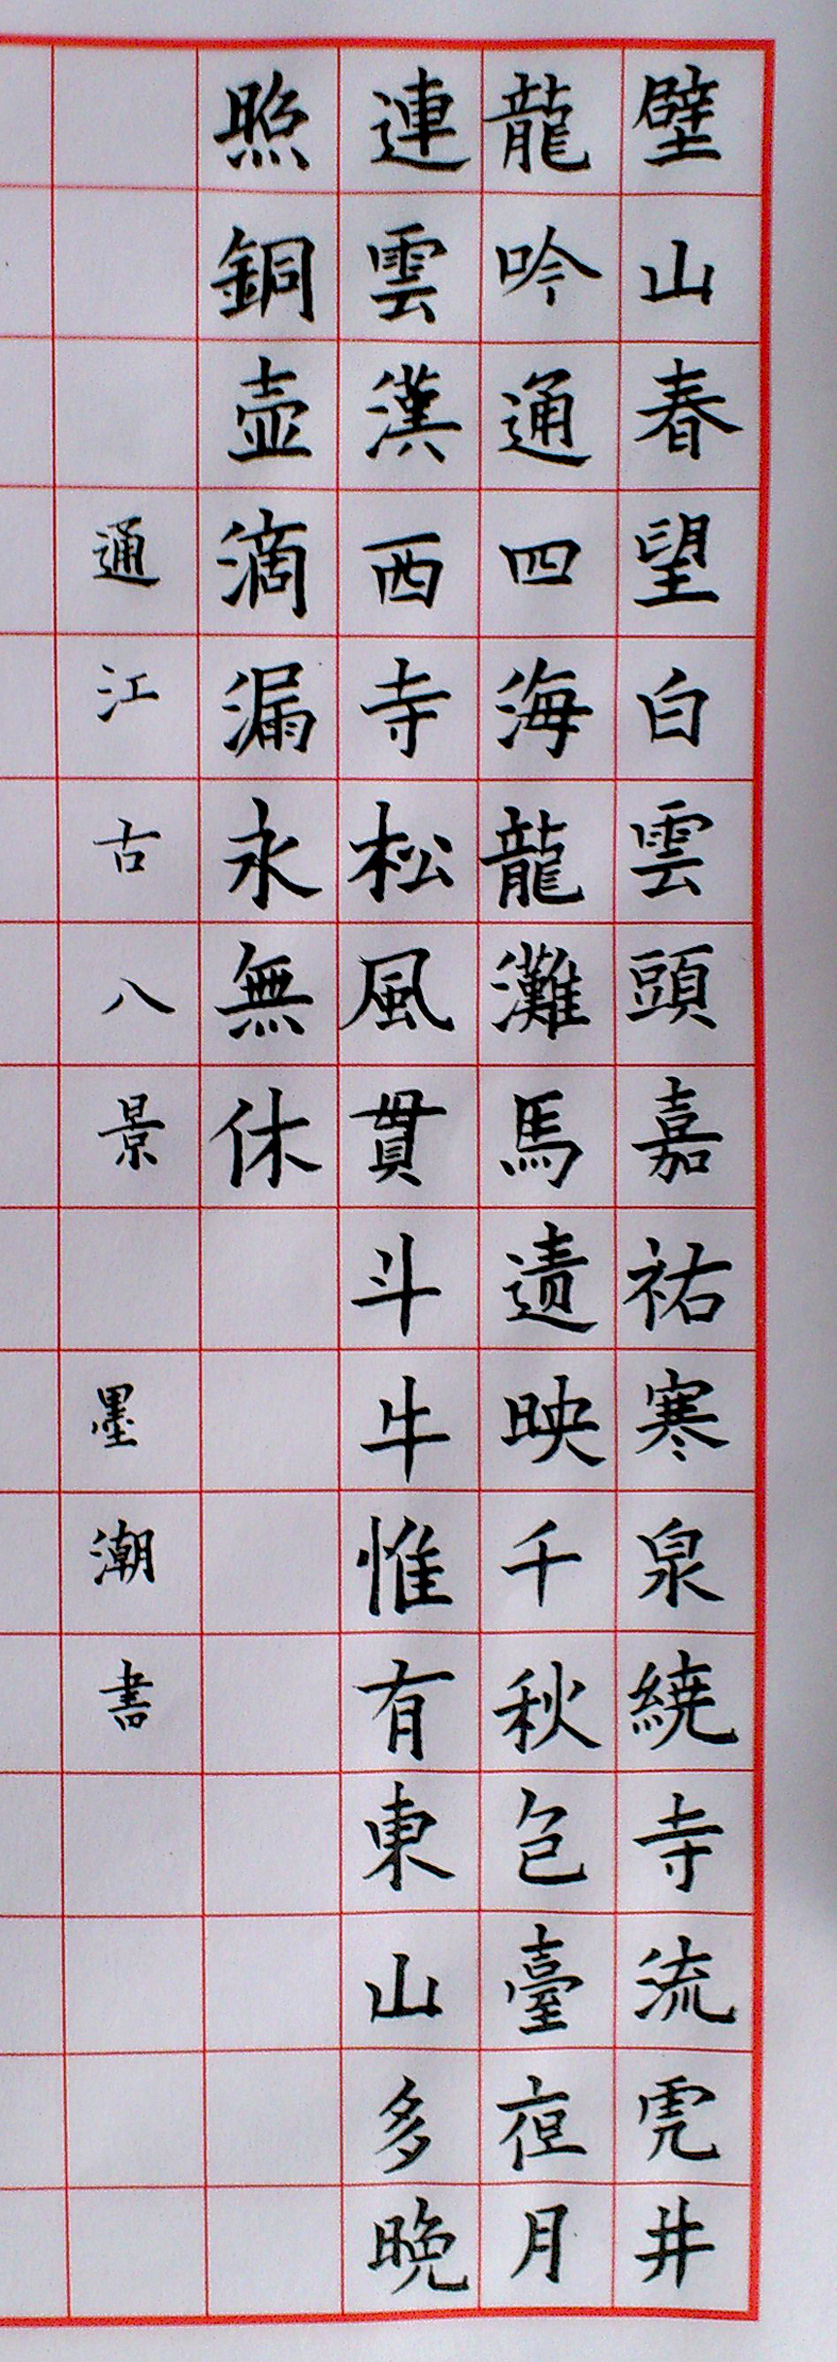 壁山春望白雲頭嘉祐寒泉繞寺流虎井
龍吟通四海龍灘馬遺映千秋包臺夜月
連雲漢西寺松風貫斗牛惟有東山多晚
照銅壺滴漏永無休
通江古八景
墨潮書